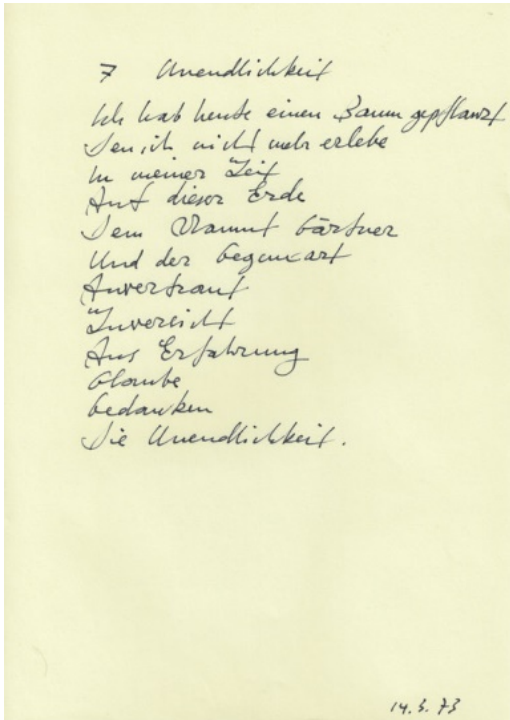 7 Unendlichkeit
Ich hab heute einen Baum gepflanzt
Den ich nicht mehr erlebe
In meiner Zeit
Auf dieser Erde
Dem Gärtner
Und der Gegenwart
Anvertraut
Zuversicht
Aus Erfahrung
Glaube
Gedanken
Die Unendlichkeit.
14.3.73